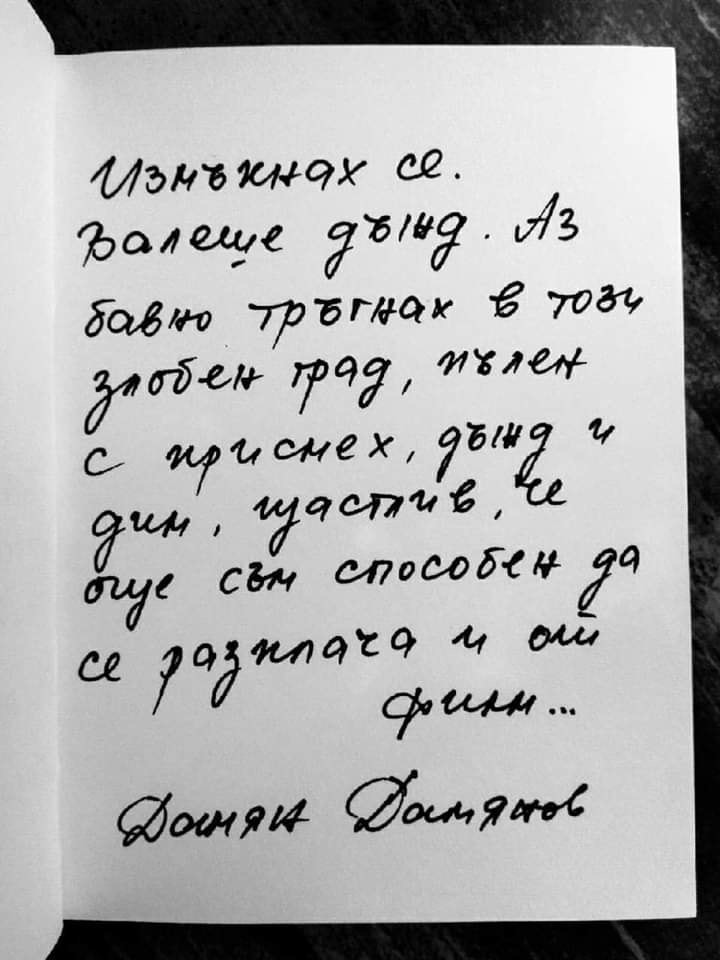 Измъкнах се.
Валеше дъжд. Аз
бавно тръгнах в този
злобен град, пълен
с присмех, дъжд и
дим, щастлив, че
още съм способен да
се разплача и от
филм...
Дамян Дамянов